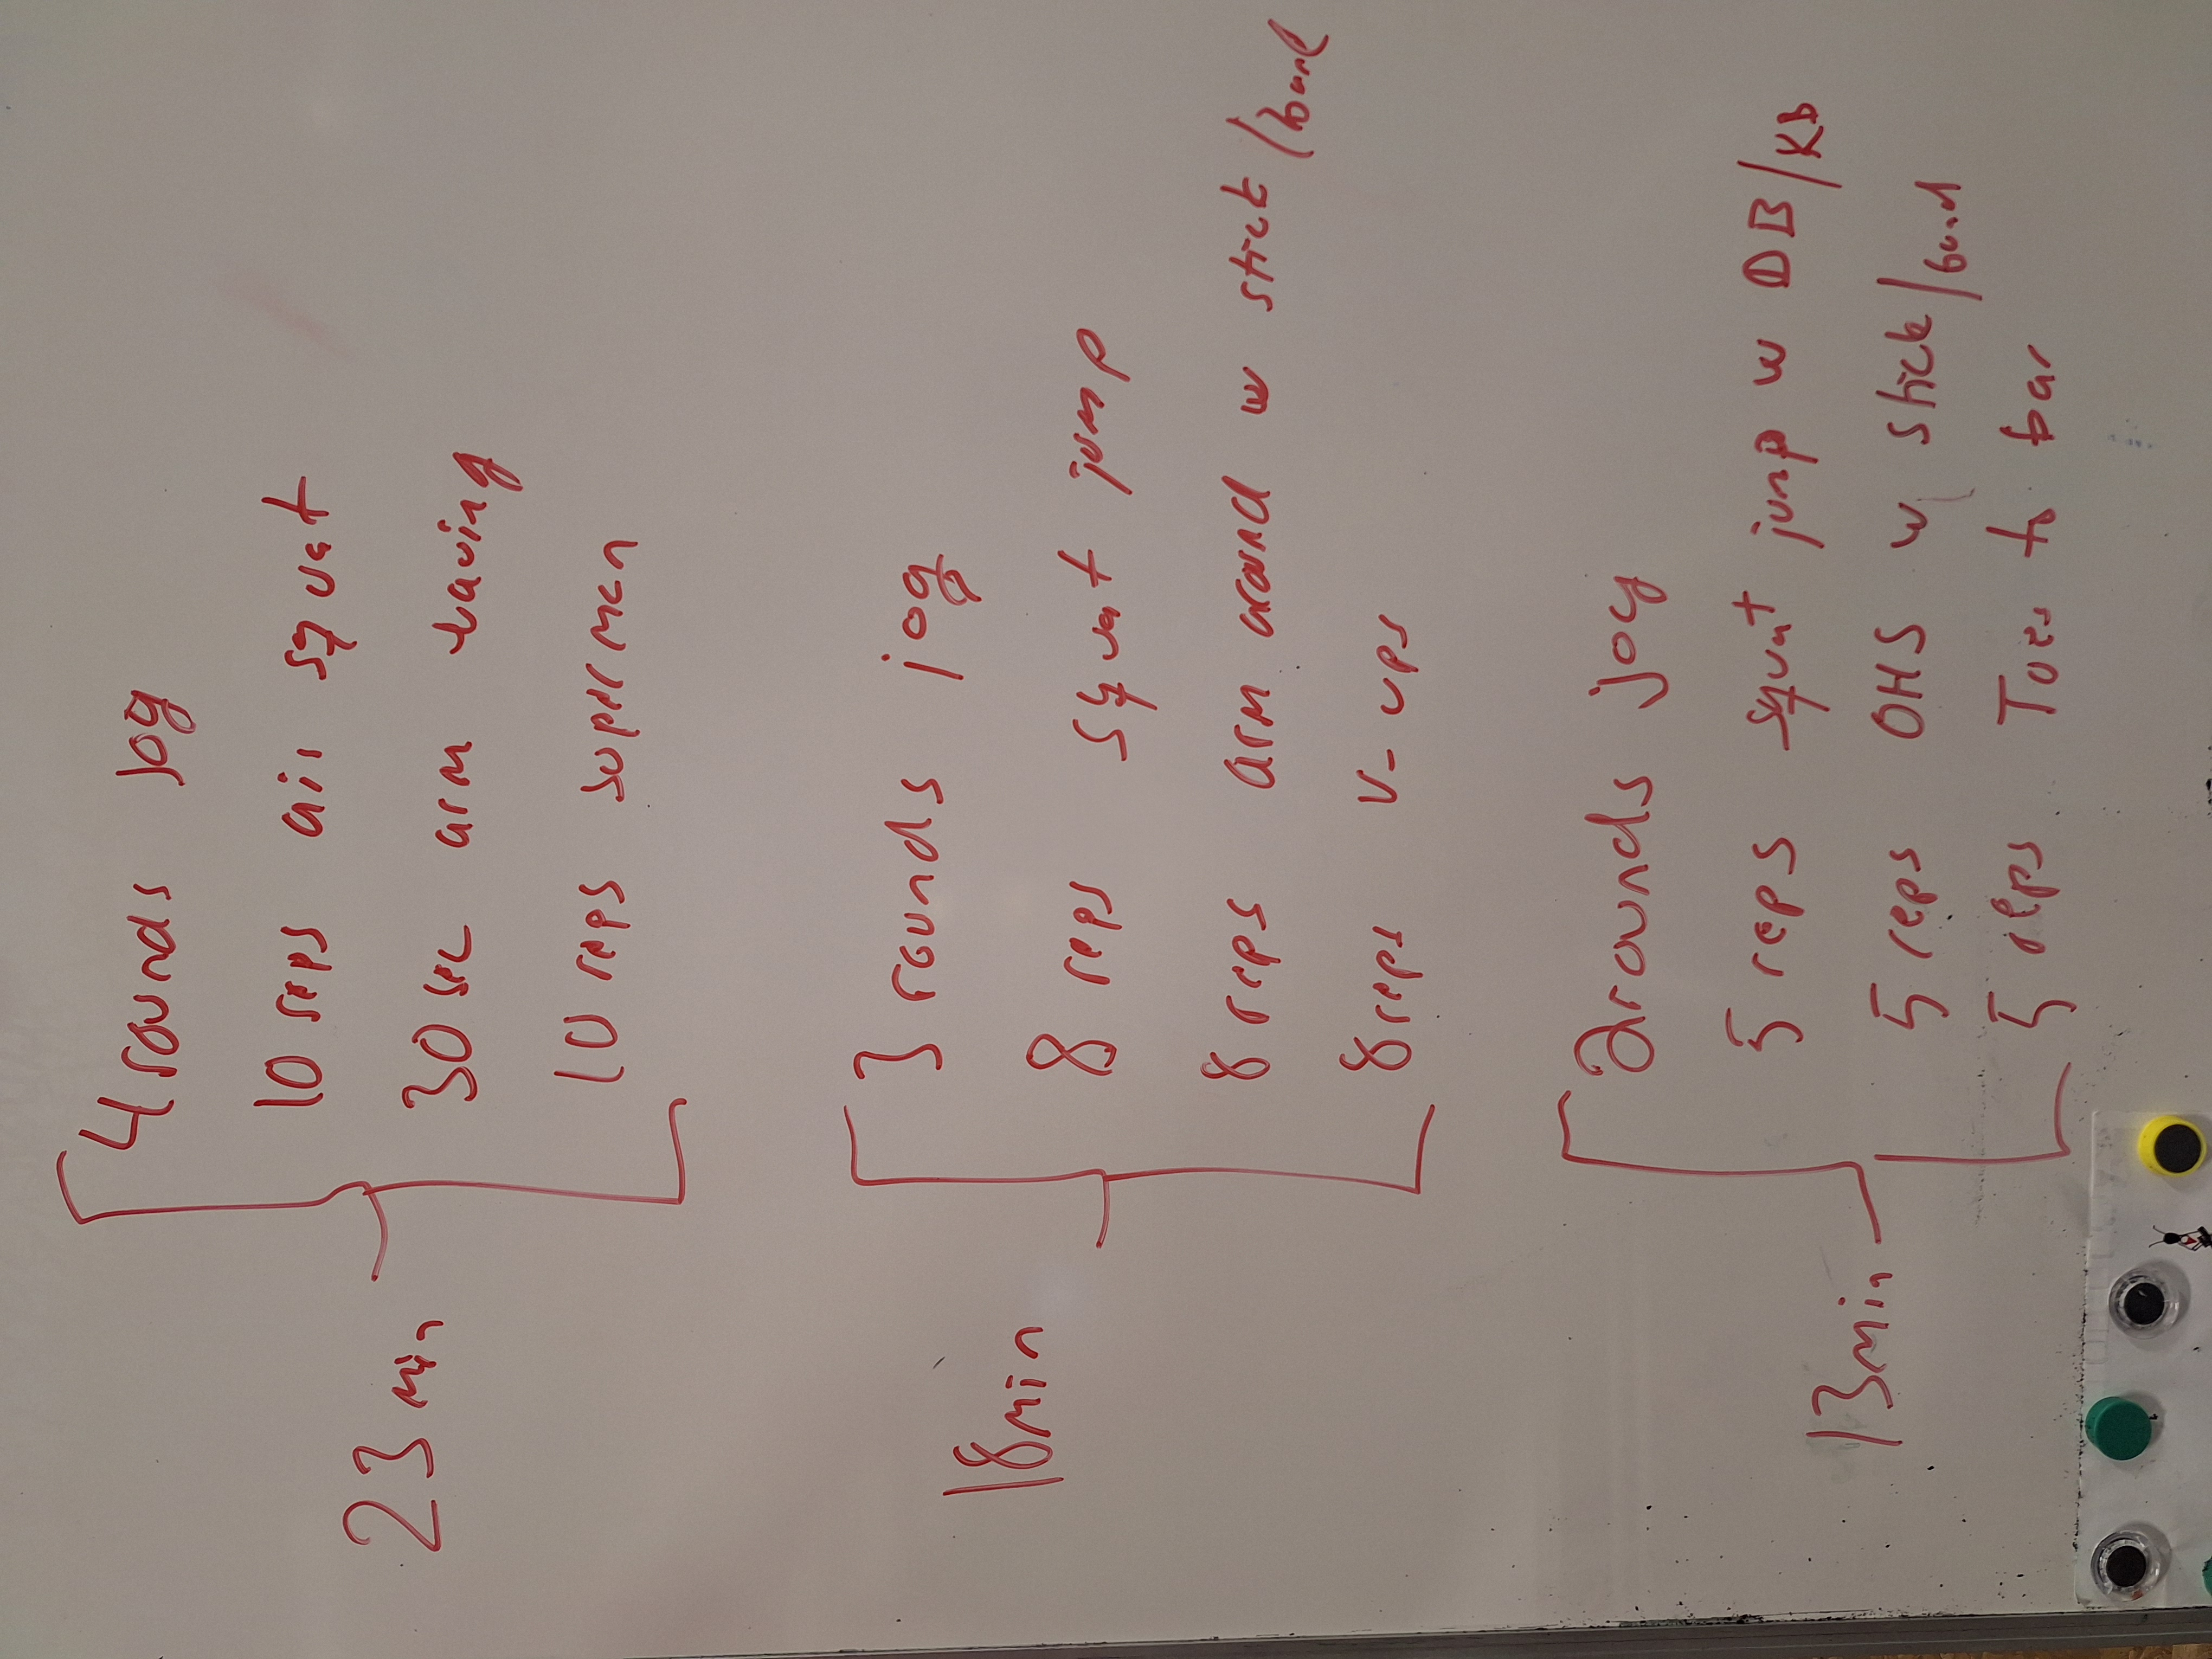 4 rounds jog
10 reps air squat
30 sec arm waving
10 reps supermen
23 min
3 rounds jog
8 reps squat jump
8 reps arm around w stick/band
8 reps v-ups
18 min
2 rounds jog
5 reps squat jump w DB/KB
5 reps OHS w stick/band
5 reps Toes to bar
13 min